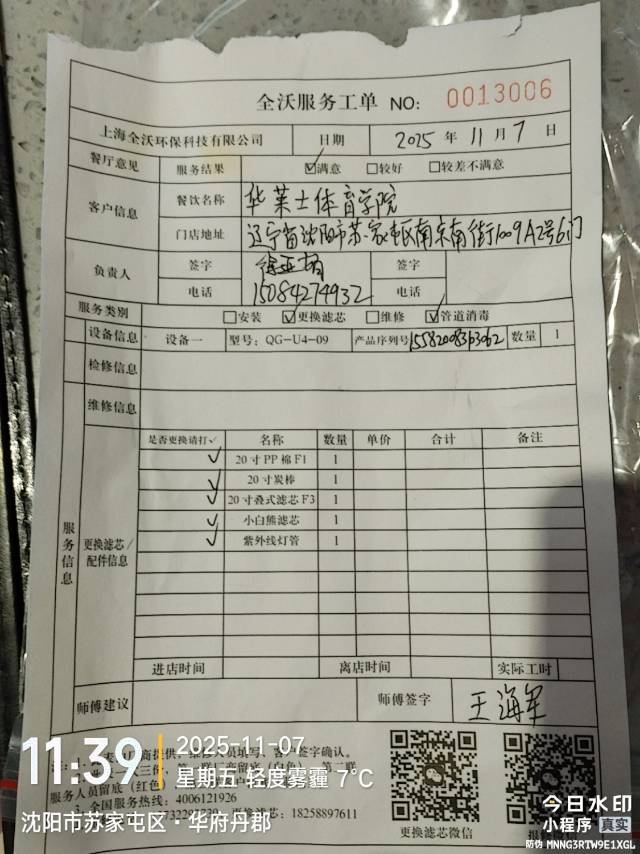 全沃服务工单 NO: 0013006
上海全沃环保科技有限公司 日期 2025 年 11 月 7 日
餐厅意见 服务结果 ☑满意 □较好 □较差不满意
客户信息 餐饮名称 华莱士体育学院
门店地址 辽宁省沈阳市苏家屯区南京南街1009A2号6门
负责人 签字 签字
电话 15084274932 电话
服务类别 □安装 ☑更换滤芯 □维修 ☑管道消毒
设备信息 设备一 型号: QG-U4-09 产品序列号 15582008363062 数量 1
检修信息
维修信息
服务信息 更换滤芯/配件信息
是否更换请打✓ 名称 数量 单价 合计 备注
✓ 20寸PP棉F1 1
✓ 20寸炭棒 1
✓ 20寸叠式滤芯F3 1
✓ 小白熊滤芯 1
✓ 紫外线灯管 1
进店时间 离店时间 实际工时
师傅建议 师傅签字 王海军
商提供, 签字确认。
三份, 留底(白色) 第二联
服务人员留底(红色)
3、全国服务热线: 4006121926
更换滤芯: 18258897611
更换滤芯微信
11:39
2025-11-07
星期五 轻度雾霾 7°C
沈阳市苏家屯区·华府丹郡
今日水印
小程序 真实
防伪 MNNG3RTW9E1XGL